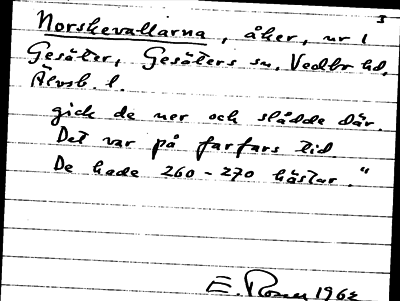 3
Norskevallarna, åker, nr 1
Gesäter, Gesäters sn, Vedbo hd,
Älvsb. l.
gick de ner och slådde där.
Det var på farfars tid.
De hade 260-270 hästar."
E. Rosen 1962